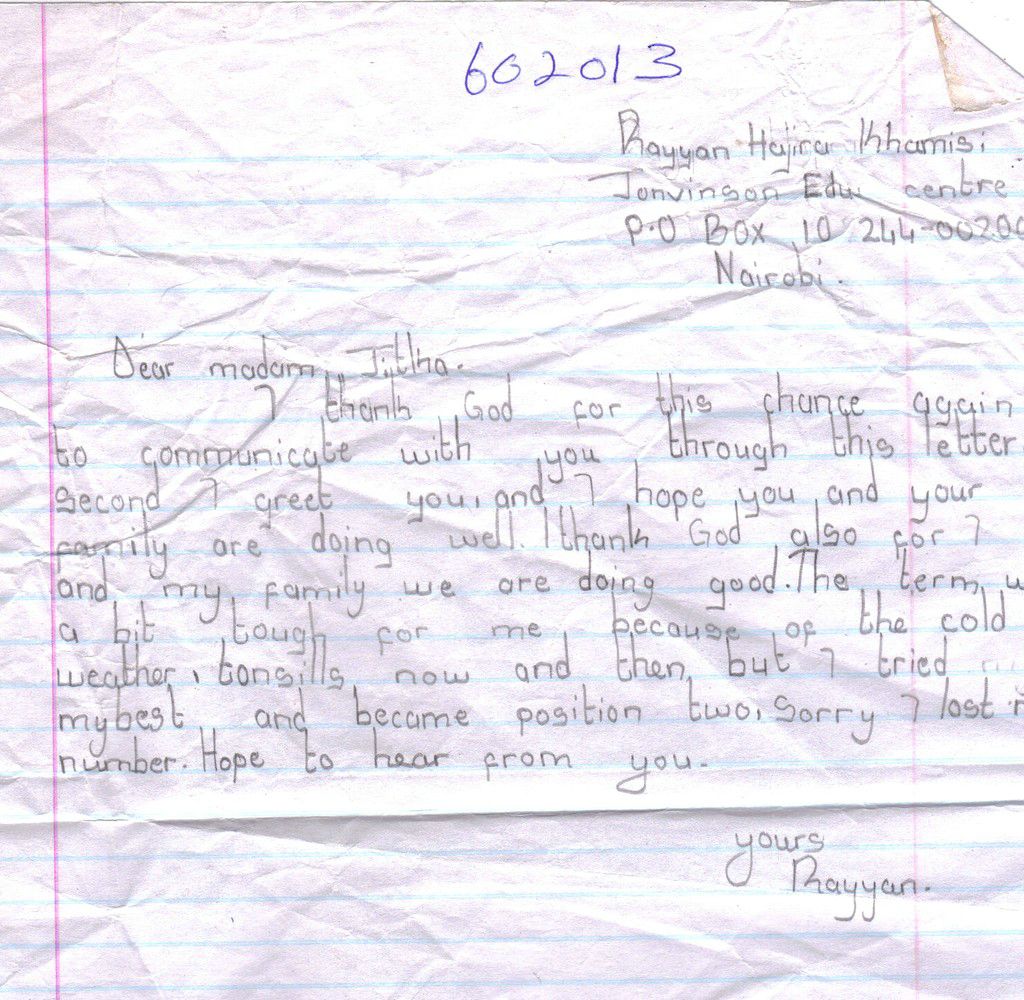 602013
Rayyan Hajira Khamisi
Jonvinson Edu. centre
P.O Box 10 244-00200
Nairobi.
Dear madam, Jitha.
I thank God for this chance again
to communicate with you through this letter.
Second I greet you, and I hope you and your
family are doing well. I thank God also for I
and my family we are doing good. The term
a bit tough for me because of the cold
weather, tonsills now and then but I tried
mybest and became position two, Sorry I lost
number. Hope to hear from you.
yours
Rayyan.